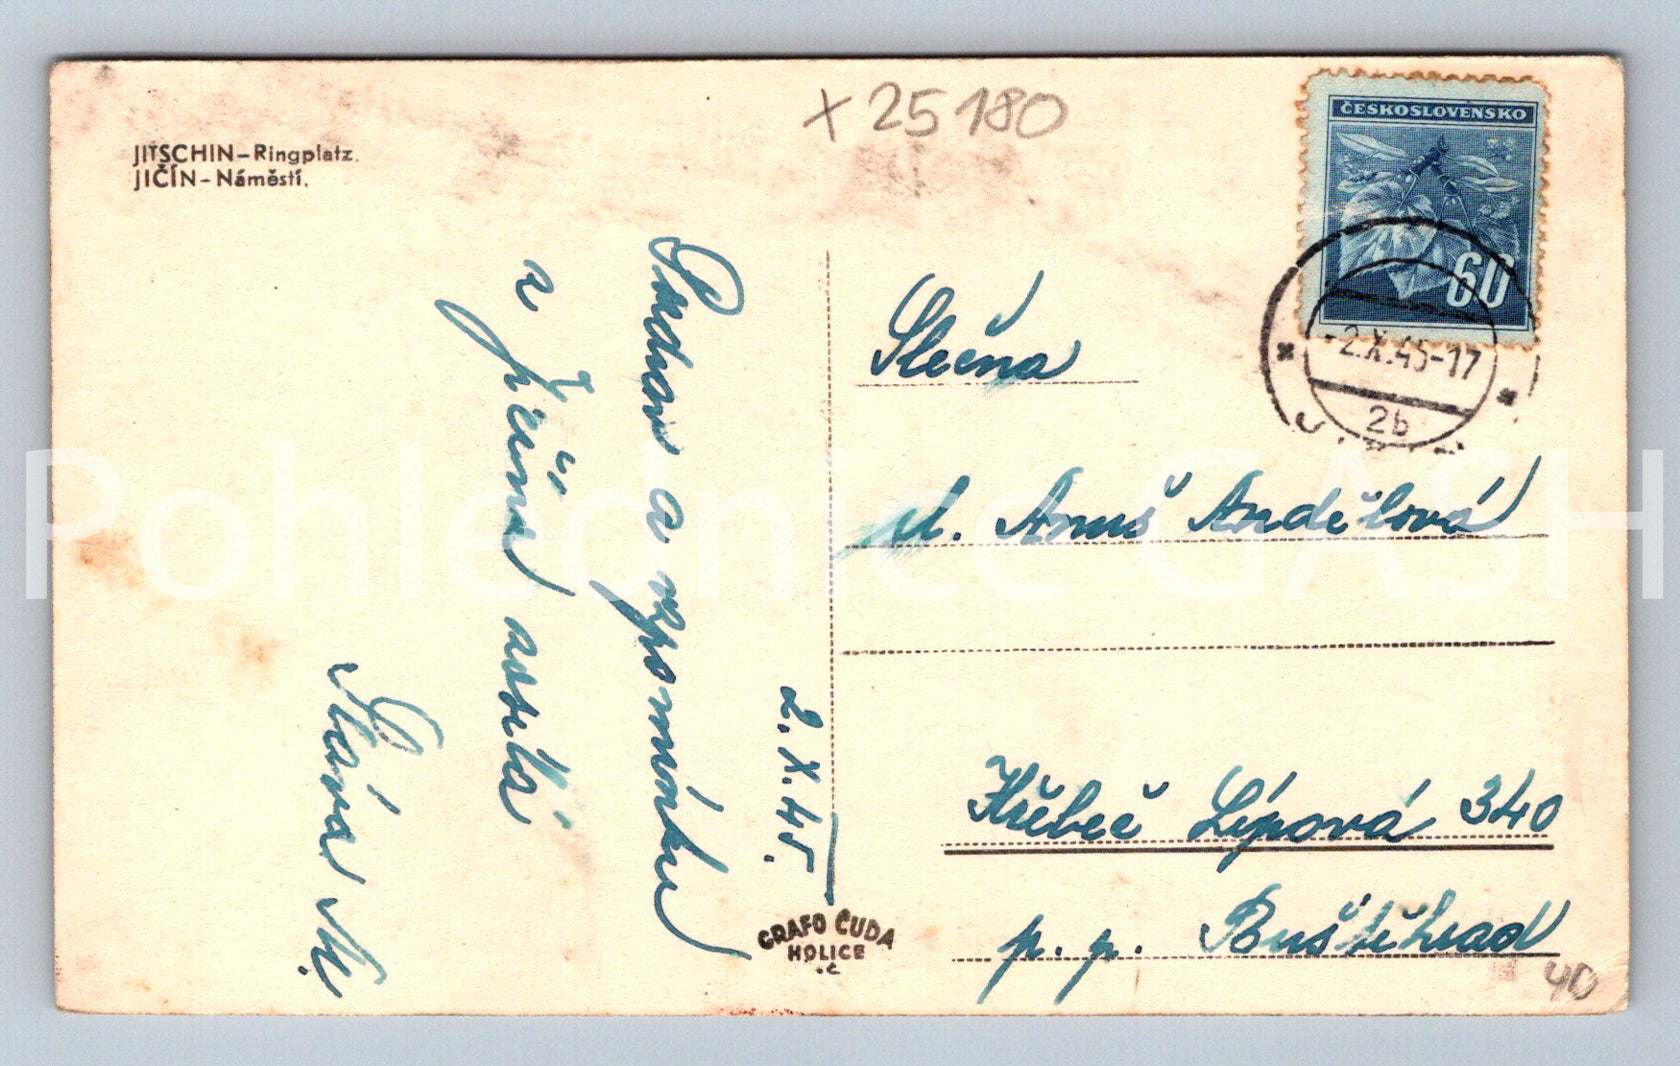 JITSCHIN–Ringplatz.
JIČÍN–Náměstí.
x 25180
ČESKOSLOVENSKO
60
-2.X.45-17
2b
2. X. 45.
Pozdrav a vzpomínku
z Jičína zasílá
Sláva M.
Slečna
sl. Anuš Andělová
Hřebeč Lípová 340
p. p. Buštěhrad
GRAFO ČUDA
HOLICE
40
Pohlednice GASH